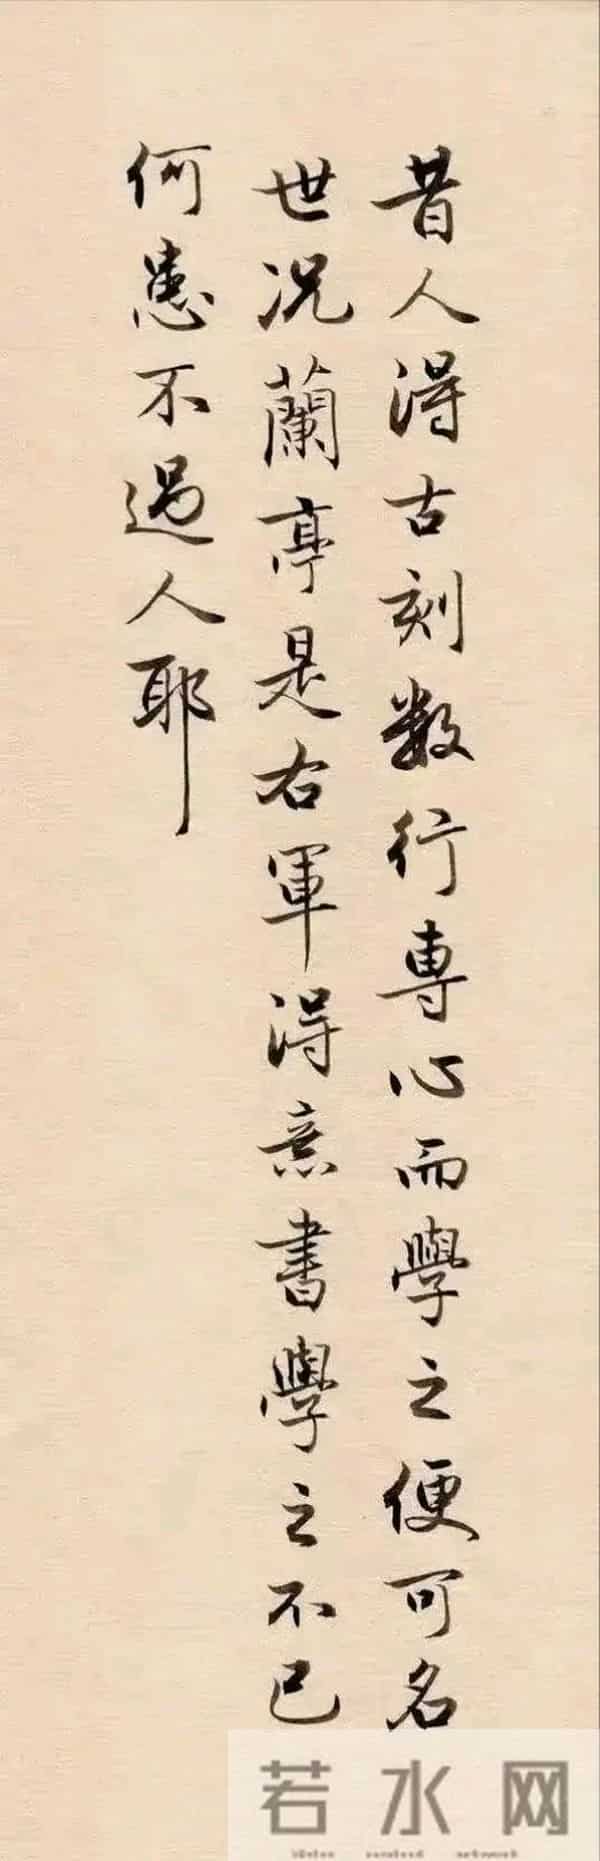 昔人得古刻数行専心而學之便可名
世况蘭亭是右軍得意書學之不已
何患不過人耶
若水网